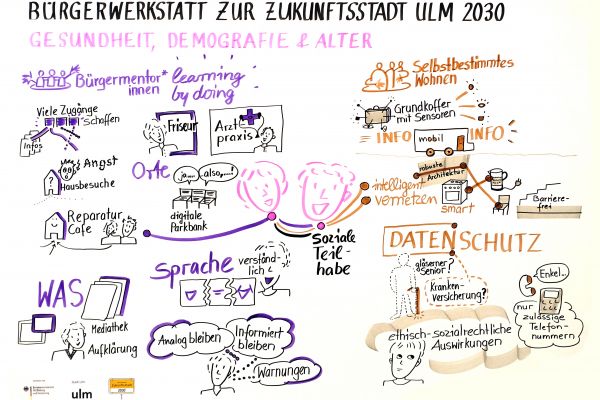 BÜRGERWERKSTATT ZUR ZUKUNFTSSTADT ULM 2030
GESUNDHEIT, DEMOGRAFIE & ALTER
Bürgermentor*
innen
learning
by doing
Viele Zugänge
schaffen
Infos
Friseur
Arzt
praxis
Angst
Hausbesuche
Orte
ja......also,...!
digitale
Parkbank
Reparatur
Cafe
Sprache
verständ-
lich
WAS
Mediathek
Aufklärung
Analog bleiben
Informiert
bleiben
Warnungen
soziale
Teil-
habe
Selbstbestimmtes
Wohnen
Grundkoffer
mit Sensoren
INFO
mobil
INFO
intelligent
vernetzen
robuste
Architektur
smart
Barriere-
frei
DATENSCHUTZ
gläserner
Senior?
Kranken-
Versicherung?
Enkel...
nur
zulässige
Telefon-
nummern
ethisch-sozialrechtliche
Auswirkungen
ulm